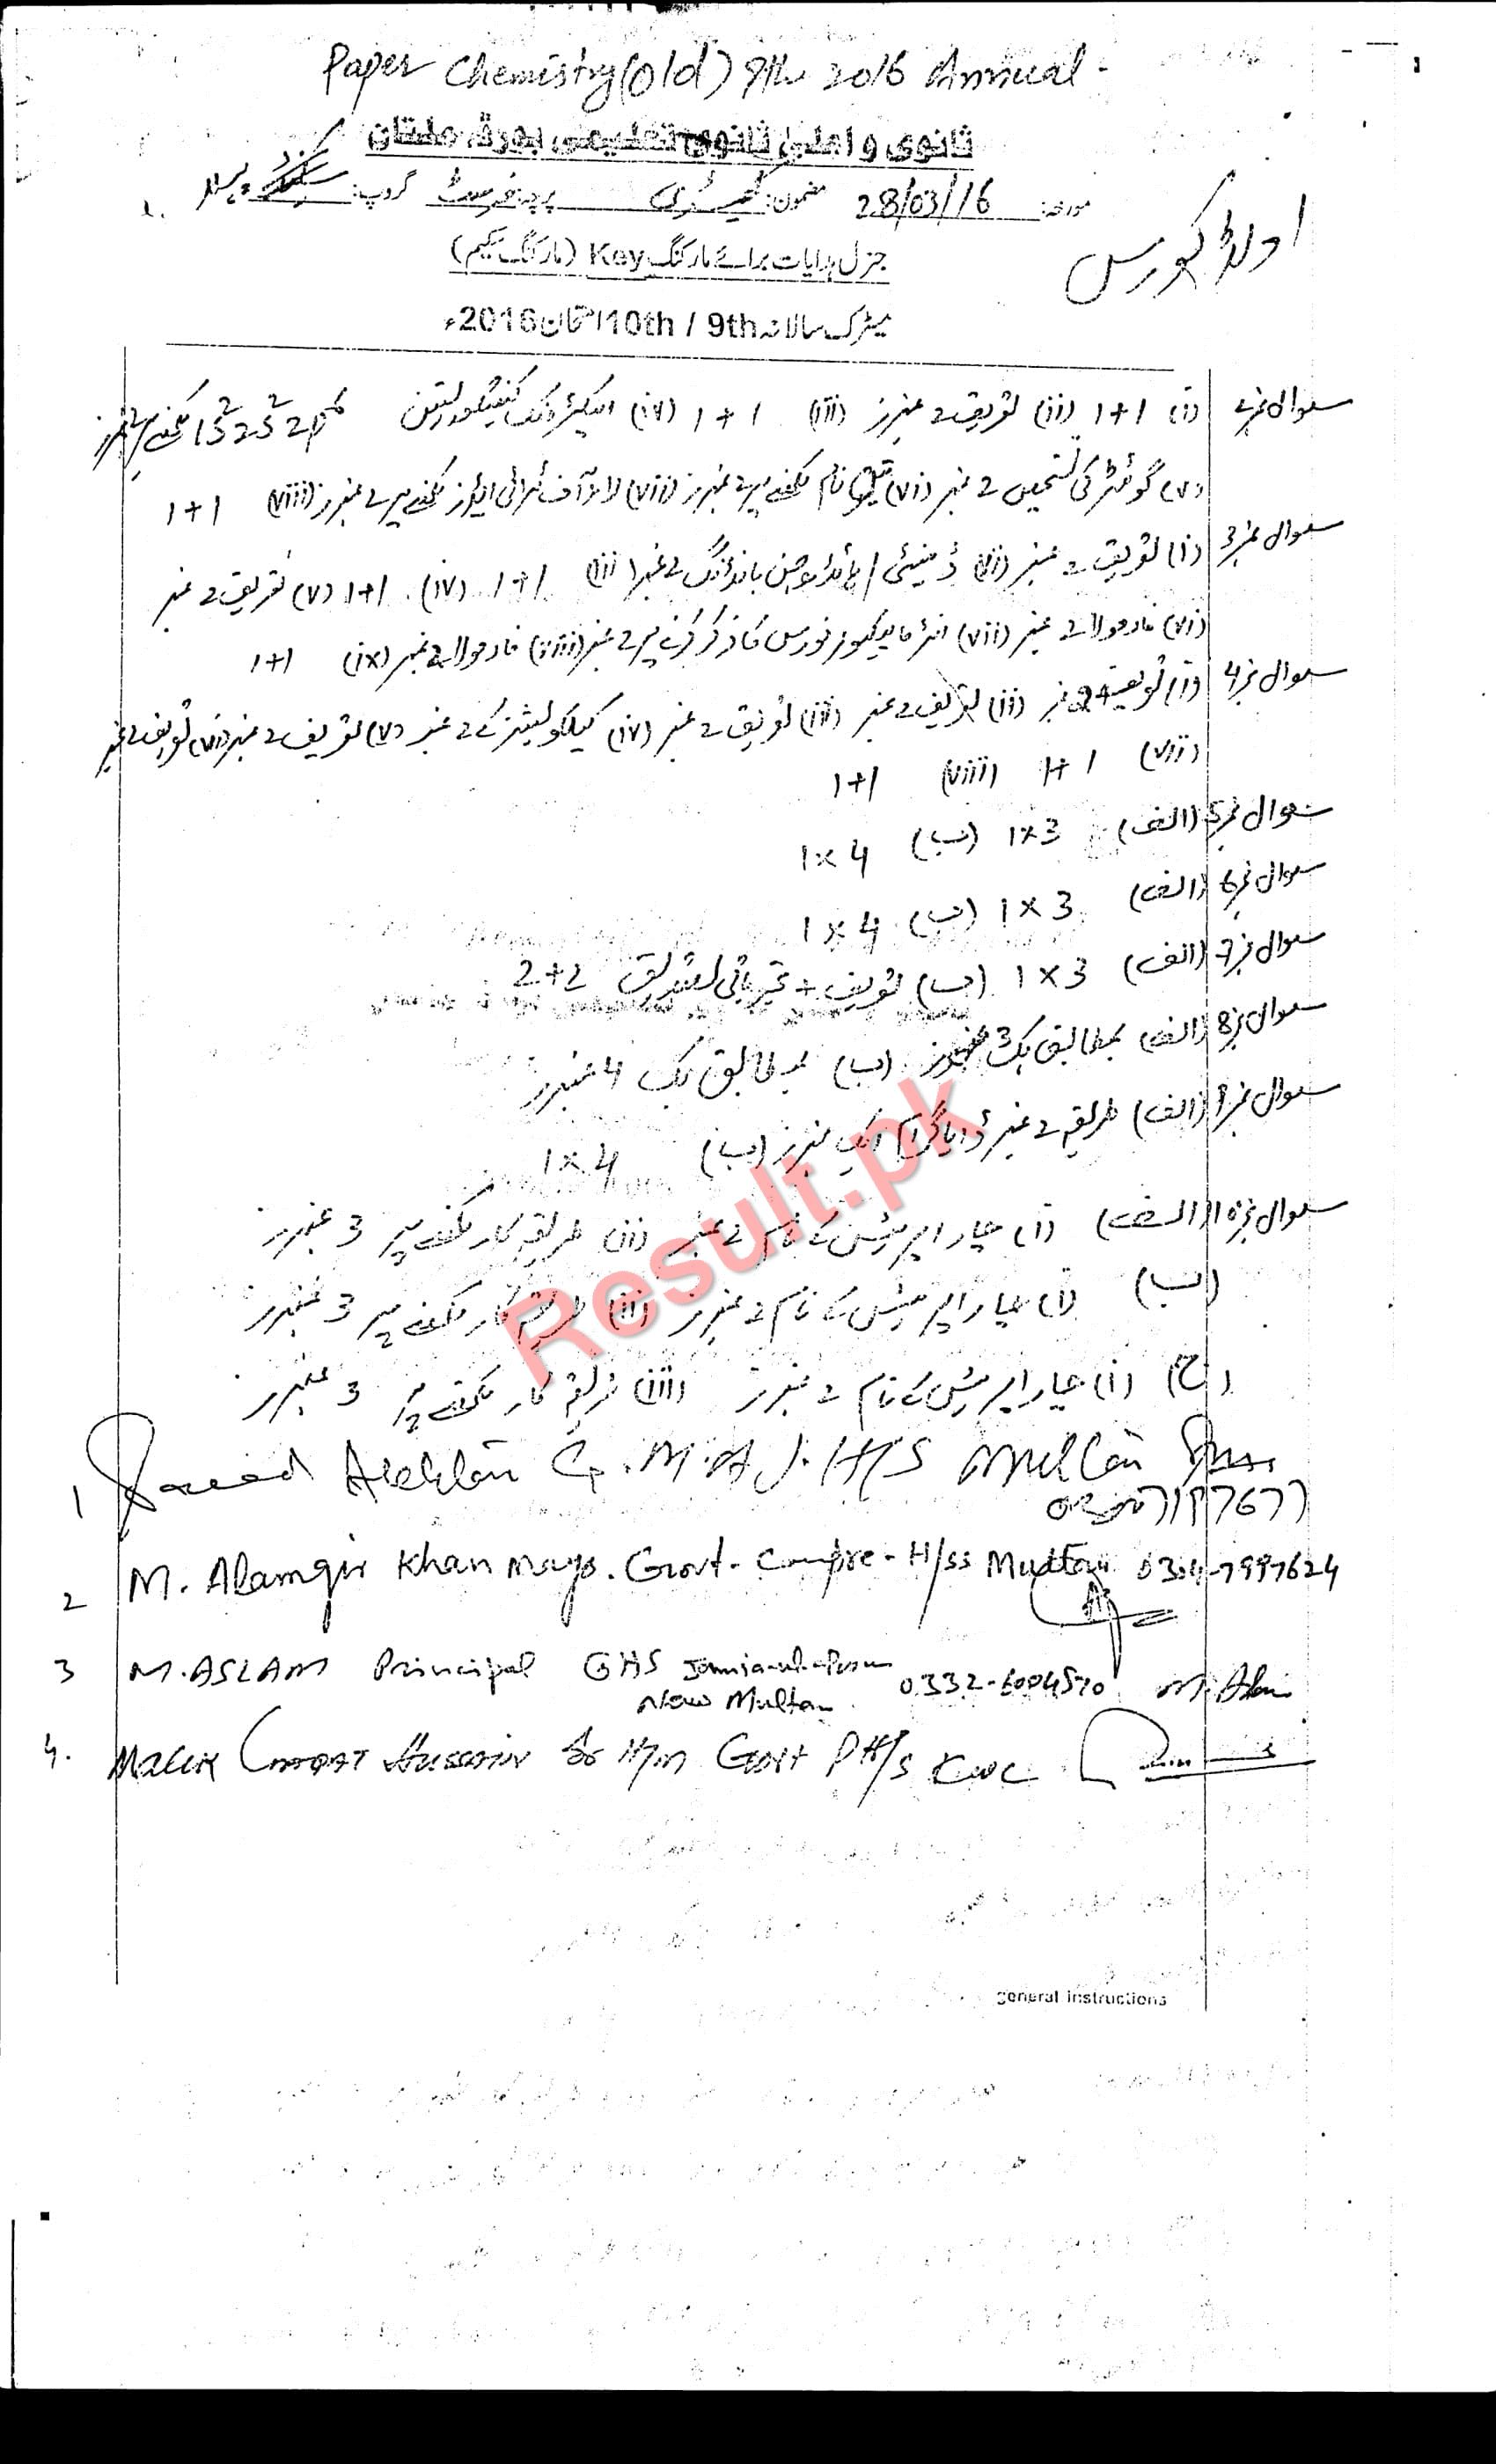 Paper Chemistry (Old) 9th 2016 Annual
ثانوی و اعلیٰ ثانوی تعلیمی بورڈ، ملتان
مورخہ: 28/03/16 مضمون: کیمسٹری پرچہ: فرسٹ گروپ:
اولڈ کورس
جنرل ہدایات برائے مارکنگ Key (مارکنگ سکیم)
میٹرک سالانہ 10th / 9th امتحان 2016ء
سوال نمبر (i) 1+1 (ii) تعریف 2 نمبرز (iii) 1+1 (iv) الیکٹرونک کنفیگوریشن 1s² 2s² 2p لکھنے پر 2 نمبرز
(v) کی 2 نمبر (vi) نام لکھنے پر 2 نمبرز (vii) لاء آف لکھنے پر 2 نمبرز (viii) 1+1
سوال نمبر 3 (i) تعریف 2 نمبر (ii) ڈینسٹی / ہائڈروجن بانڈنگ 2 نمبر (iii) 1+1 (iv) 1+1 (v) تعریف 2 نمبر
(vi) فارمولا 2 نمبر (vii) انٹرمالیکیولر فورس کا ذکر کرنے پر 2 نمبر (viii) فارمولا 2 نمبر (ix) 1+1
سوال نمبر 4 (i) تعریف 2 نمبر (ii) تعریف 2 نمبر (iii) تعریف 2 نمبر (iv) کیلکولیشنز کے 2 نمبر (v) تعریف 2 نمبر (vi) تعریف 2 نمبر
(vii) 1+1 (viii) 1+1
سوال نمبر 5 (الف) 1×3 (ب) 1×4
سوال نمبر 6 (الف) 1×3 (ب) 1×4
سوال نمبر 7 (الف) 1×3 (ب) تعریف + تجرباتی تصدیق 2+2
سوال نمبر 8 (الف) بمطابق بک 3 نمبرز (ب) بمطابق بک 4 نمبرز
سوال نمبر 9 (الف) طریقہ 2 نمبر ڈایاگرام ایک نمبر (ب) 1×4
سوال نمبر 10 (الف) (i) چار اپریٹس کے نام 2 نمبر (ii) طریقہ کار لکھنے پر 3 نمبرز
(ب) (i) چار اپریٹس کے نام 2 نمبرز (ii) طریقہ کار لکھنے پر 3 نمبرز
(ج) (i) چار اپریٹس کے نام 2 نمبرز (ii) طریقہ کار لکھنے پر 3 نمبرز
1 Saeed G.M.A.J. H/S Multan
2 M. Alamgir Khan Mayo. Govt. Compre. H/SS Multan 0304-7997624
3 M. ASLAM Principal GHS New Multan 0332-6004570 M. Aslam
4. Malik Hussain Govt H/S KWL
Result.pk
general instructions